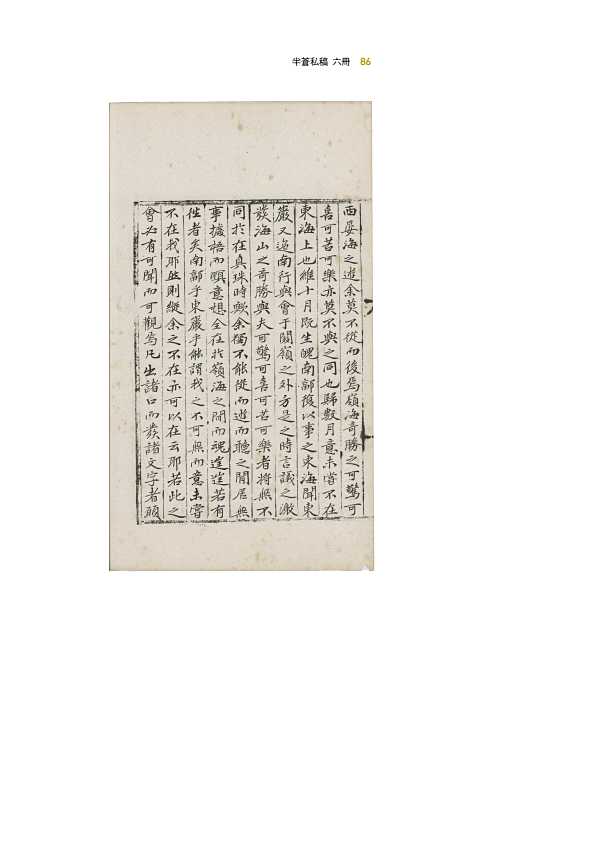 半蒼私稿 六冊 86
西晏海之遊余莫不從而後焉嶺海奇勝之可驚可
喜可苦可樂亦莫不與之同也歸數月意未嘗不在
東海上也維十月旣生魄南郭復以事之東海聞東
巖又迤南行與會于関嶺之外方是之時言議之激
發海山之奇勝與夫可驚可喜可苦可樂者將無不
同於在真珠時歟余獨不能從而遊而聽之閒居無
事據梧而瞑意想全在於嶺海之間而魂遑遑若有
徃者矣南郭乎東巖乎能謂我之不可無而意未嘗
不在我那然則縱余之不在亦可以在云那若此之
會必有可聞而可觀焉凡出諸口而發諸文字者願